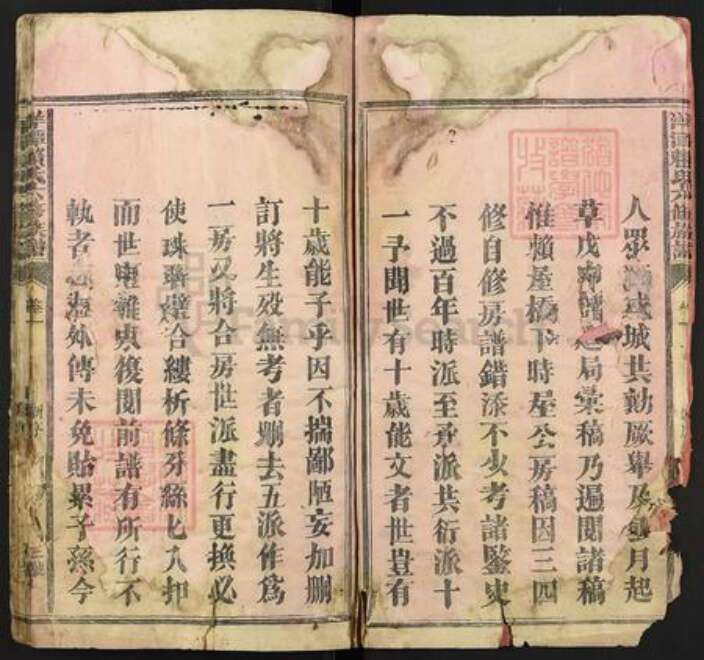 人眾 城共勷厥舉及 月起
草戊 局彙稿乃遍閱諸稿
惟賴屋橋下時屋公房稿因三四
修自修房譜錯添不少考諸鑒史
不過百年時派至承派共衍派十
一予聞世有十歲能文者世豈有
十歲能子乎因不揣鄙陋妄加刪
訂將生歿無考者刪去五派作為
一房又將合房世派盡行更換必
使珠聯璧合縷析條分絲七入扣
而世 雖 復閱前譜有所行不
執者 海外傳未免貽累子孫今
氏六修族譜
卷一
FamilySearch